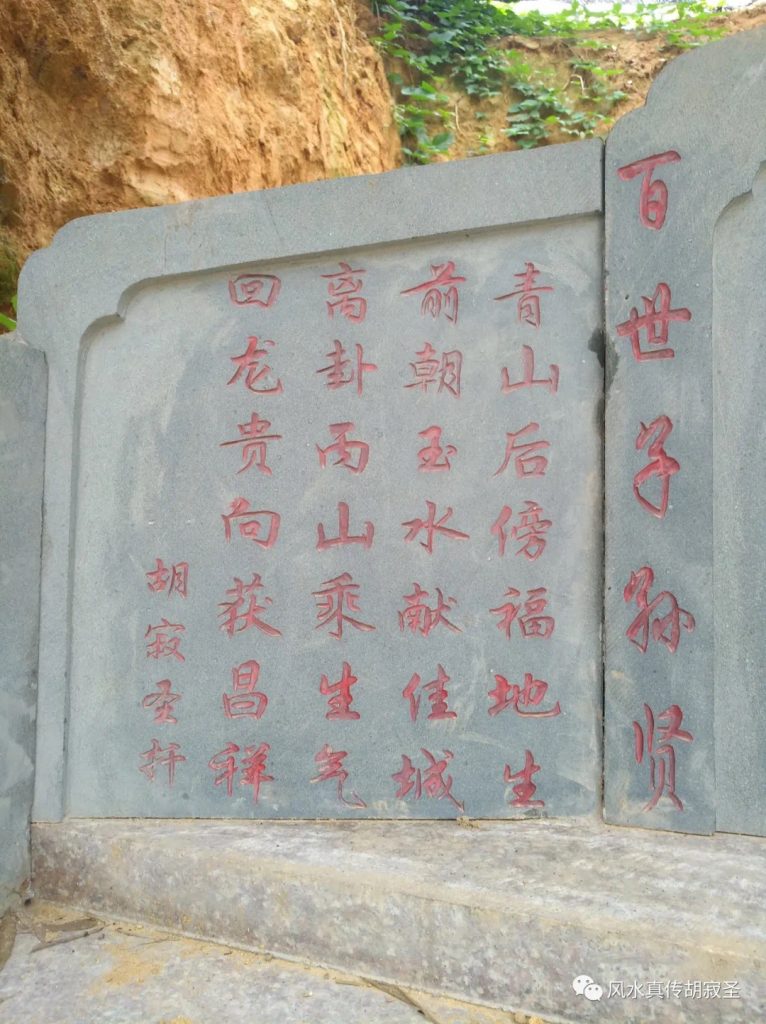 百世子孙贤
青山后傍福地生
前朝玉水献佳城
离卦丙山乘生气
回龙贵向获昌祥
胡寂圣扦
风水真传胡寂圣